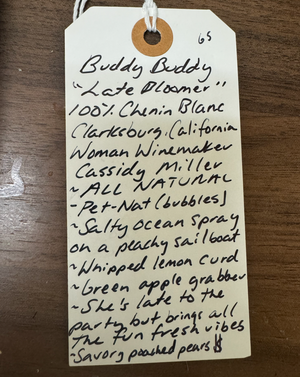 65
Buddy Buddy
"Late Bloomer"
100% Chenin Blanc
Clarksburg, California
Woman Winemaker
Cassidy Miller
~ALL NATURAL
-Pet-Nat (bubbles)
~Salty ocean spray
on a peachy sailboat
~Whipped lemon curd
~Green apple grabber
~She's late to the
party but brings all
the fun fresh vibes
~Savory poached pears